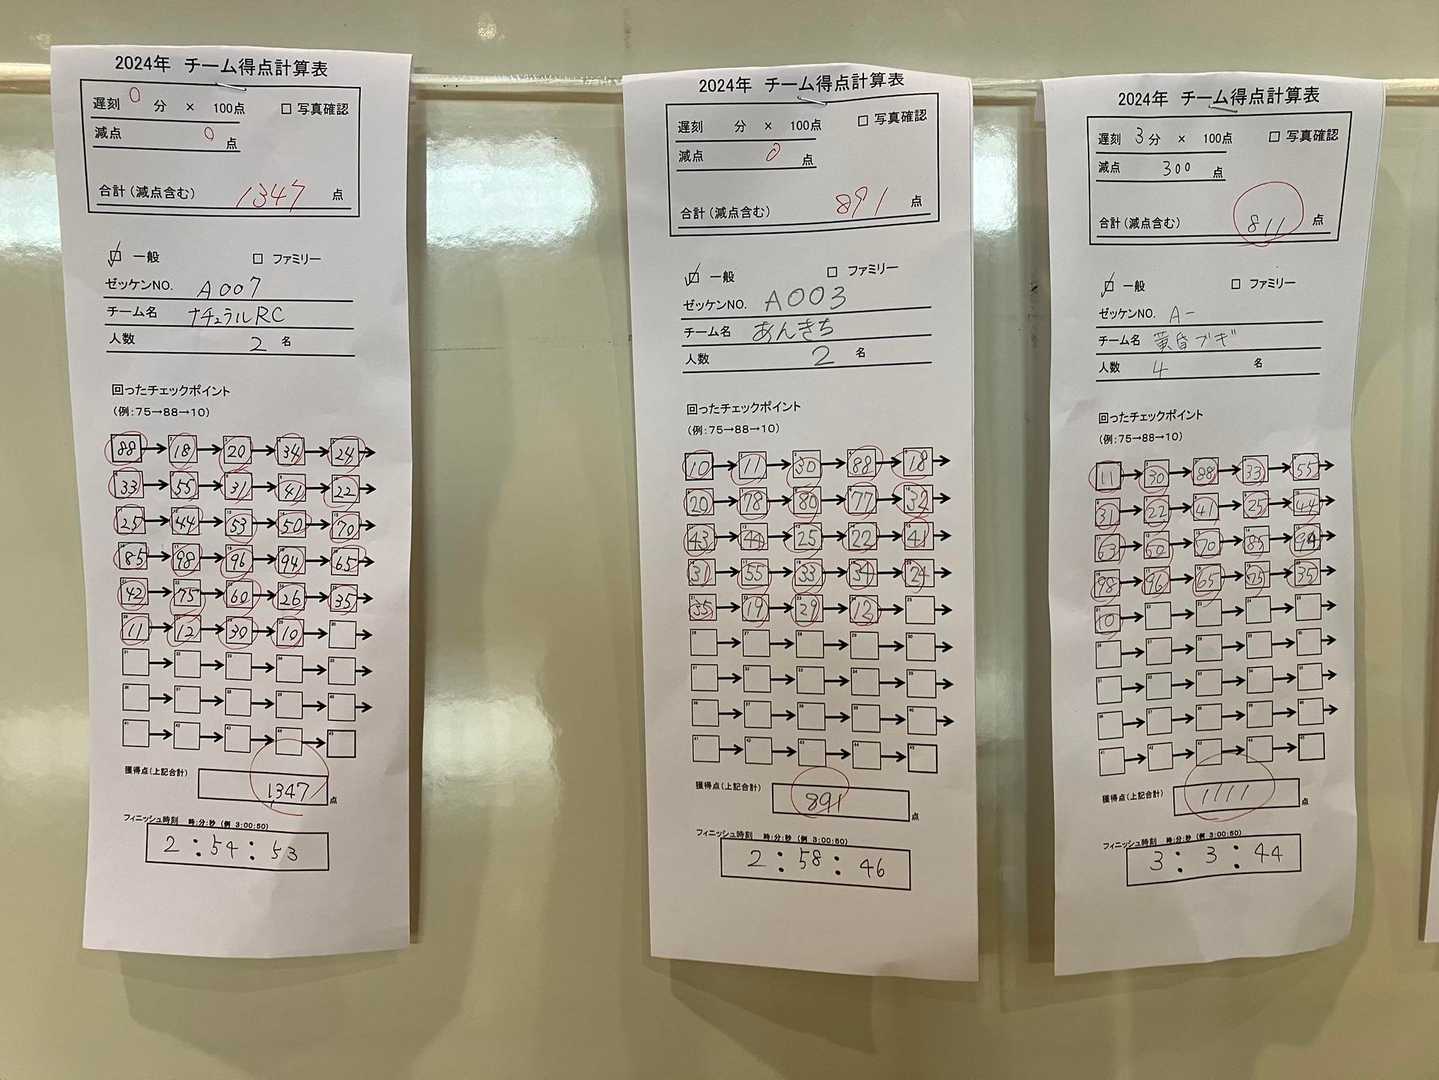 2024年 チーム得点計算表
遅刻 0 分 × 100点 □ 写真確認
減点 0 点
合計(減点含む) 1347 点
☑ 一般 □ ファミリー
ゼッケンNO. A007
チーム名 ナチュラルRC
人数 2 名
回ったチェックポイント
(例:75→88→10)
88→18→20→34→24→
33→55→31→41→22→
25→44→53→50→70→
85→98→96→94→65→
42→75→60→26→35→
11→12→30→10→
獲得点(上記合計) 1347 点
フィニッシュ時刻 時:分:秒 (例 3:00:50)
2:54:53
2024年 チーム得点計算表
遅刻 分 × 100点 □ 写真確認
減点 0 点
合計(減点含む) 891 点
☑ 一般 □ ファミリー
ゼッケンNO. A003
チーム名 あんきち
人数 2 名
回ったチェックポイント
(例:75→88→10)
10→11→30→88→18→
20→78→80→77→32→
43→44→25→22→41→
31→55→33→34→24→
35→19→29→12→
獲得点(上記合計) 891 点
フィニッシュ時刻 時:分:秒 (例 3:00:50)
2:58:46
2024年 チーム得点計算表
遅刻 3 分 × 100点 □ 写真確認
減点 300 点
合計(減点含む) 811 点
☑ 一般 □ ファミリー
ゼッケンNO. A-
チーム名 黄昏ブギ
人数 4 名
回ったチェックポイント
(例:75→88→10)
11→30→88→33→55→
31→22→41→25→44→
53→50→70→85→94→
98→96→65→75→35→
10→
獲得点(上記合計) 1111 点
フィニッシュ時刻 時:分:秒 (例 3:00:50)
3:3:44